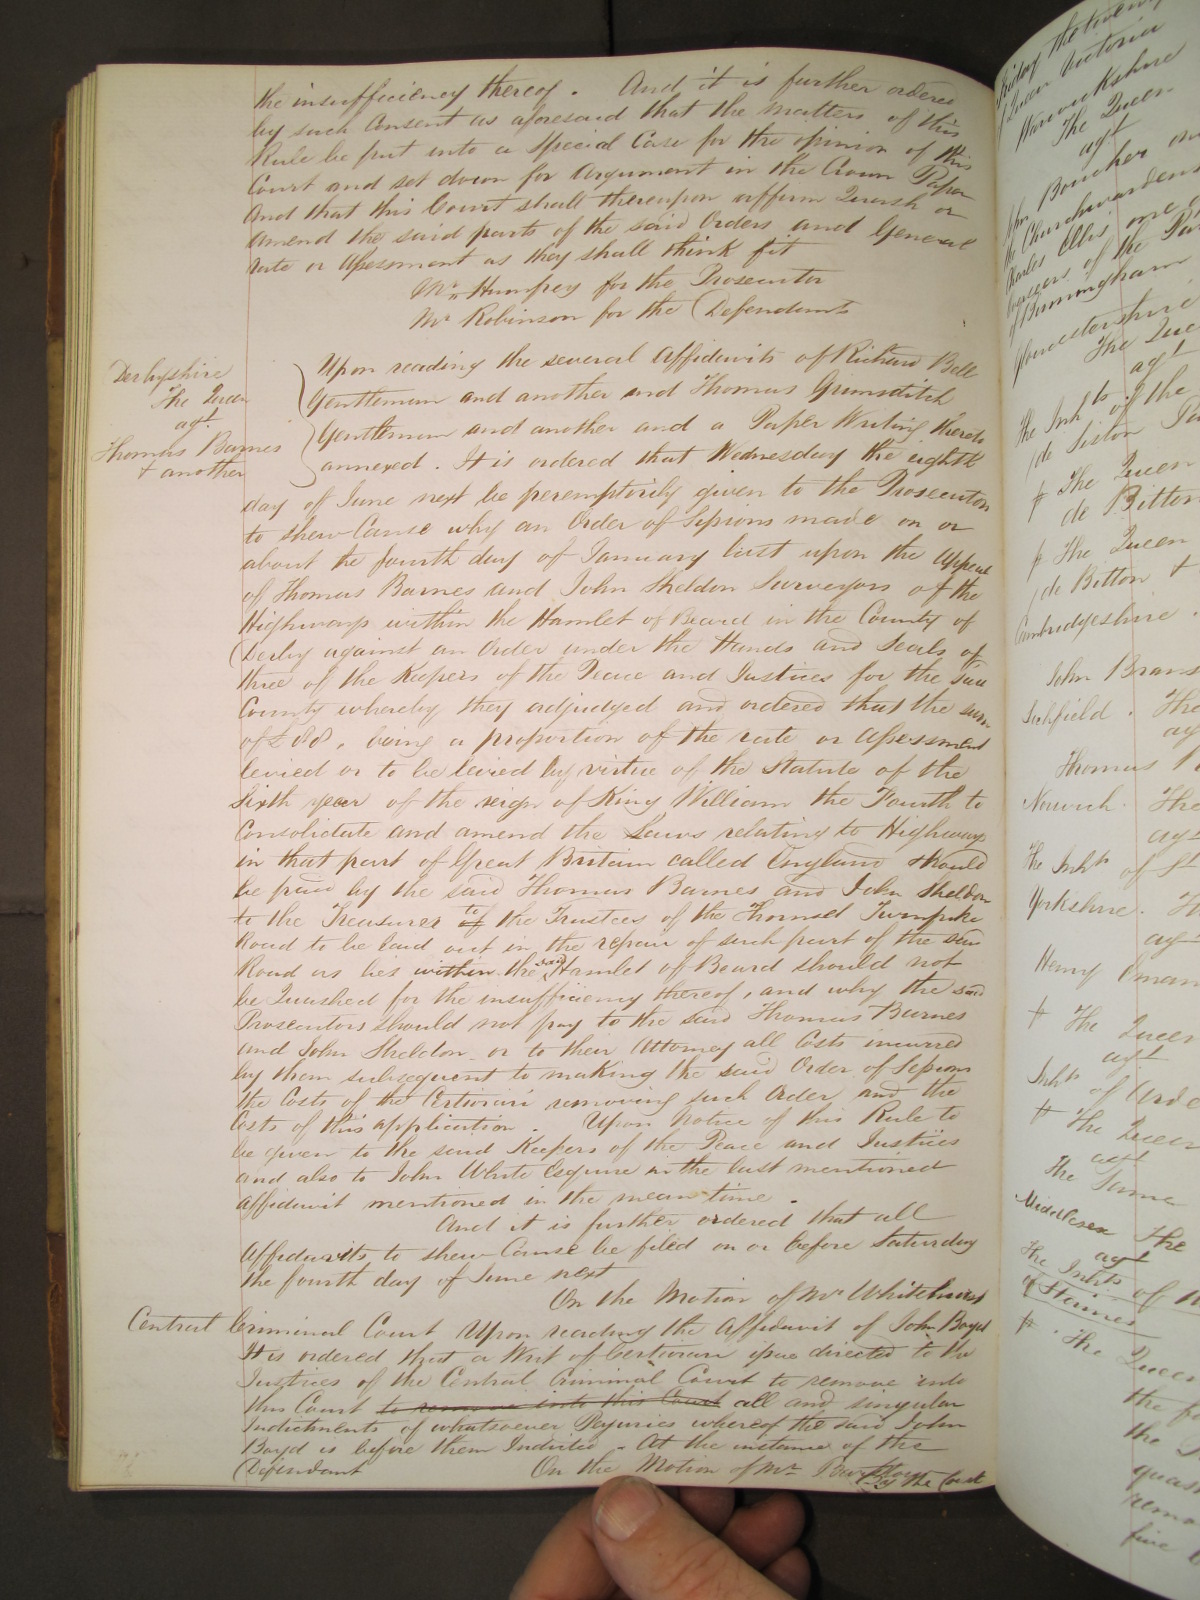 the insufficiency thereof. And it is further ordered
by such Consent as aforesaid that the matters of this
Rule be put into a Special Case for the opinion of this
Court and set down for Argument in the Crown Paper
And that this Court shall thereupon affirm Quash or
amend the said parts of the said Orders and General
rate or Assessment as they shall think fit
Mr. Humfrey for the Prosecutor
Mr Robinson for the Defendants
Derbyshire
The Queen
agt.
Thomas Barnes
& another
Upon reading the several Affidavits of Richard Bell
Gentleman and another and Thomas Grimsditch
Gentleman and another and a Paper Writing thereto
annexed. It is ordered that Wednesday the eighth
day of June next be peremptorily given to the Prosecutors
to shew Cause why an Order of Sessions made on or
about the fourth day of January last upon the appeal
of Thomas Barnes and John Sheldon Surveyors of the
Highways within the Hamlet of Beard in the County of
Derby against an Order under the Hands and Seals of
three of the Keepers of the Peace and Justices for the said
County whereby they adjudged and ordered that the sum
of £ being a proportion of the rate or assessment
levied or to be levied by virtue of the statute of the
Sixth year of the reign of King William the Fourth to
Consolidate and amend the Laws relating to Highways
in that part of Great Britain called England should
be paid by the said Thomas Barnes and John Sheldon
to the Treasurer to of the Trustees of the Thornset Turnpike
Road to be laid out in the repair of such part of the said
Road as lies within the said Hamlet of Beard should not
be Quashed for the insufficiency thereof, and why the said
Prosecutors should not pay to the said Thomas Barnes
and John Sheldon or to their Attorney all Costs incurred
by them subsequent to making the said Order of Sessions
the Costs of the Certiorari removing such Order and the
Costs of this application. Upon notice of this Rule to
be given to the said Keepers of the Peace and Justices
and also to John White Esquire in the last mentioned
affidavit mentioned in the mean time.
And it is further ordered that all
Affidavits to shew Cause be filed on or before Saturday
the fourth day of June next
On the Motion of Mr Whitehurst
Central Criminal Court Upon reading the affidavit of John Boyd
It is ordered that a Writ of Certiorari issue directed to the
Justices of the Central Criminal Court to remove into
this Court to remove into this Court all and singular
Indictments of whatsoever Perjuries whereof the said John
Boyd is before them Indicted. At the instance of the
Defendant On the Motion of Mr
By the Court
Friday the twenty
Queen Victoria
Warwickshire
The Queen
agt
Boucher
the Churchwardens
Charles Ellis one of
of the
of Birmingham
Gloucestershire
The Queen
agt
the Inhts of the
de Siston
The Queen
de Bitton
The Queen
de Bitton &
Cambridgeshire.
John
Lichfield. The
ag
Thomas
Norwich. The
agt
The Inhts of St
Yorkshire.
agt
Henry
The Queen
agt
Inhts of
The Queen
agt
The Same
Middlesex The
agt
The Inhts of
of Staines
The Queen
the
the
five